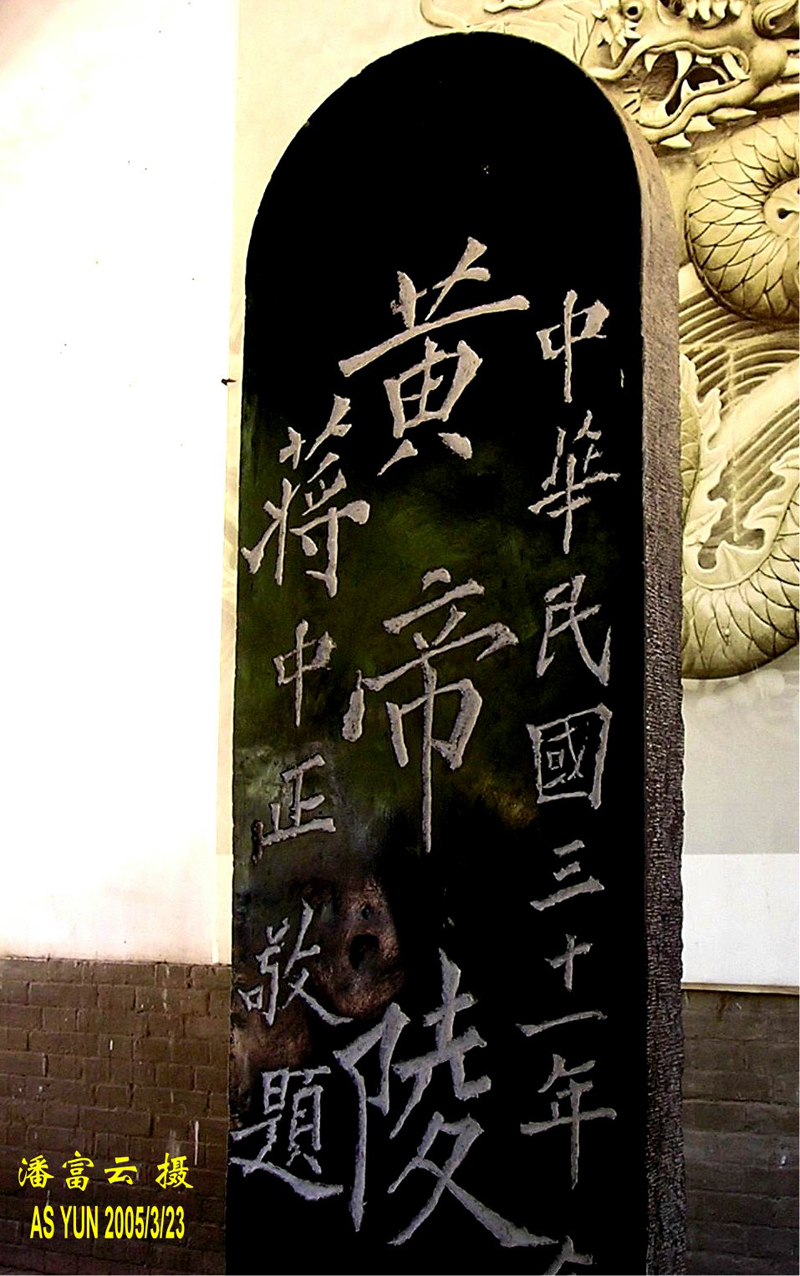 中華民國三十一年
黄帝陵
蔣中正敬題
潘富云 摄
AS YUN 2005/3/23